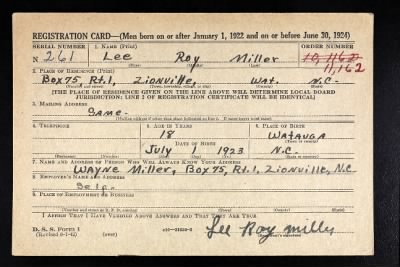 REGISTRATION CARD—(Men born on or after January 1, 1922 and on or before June 30, 1924)
SERIAL NUMBER 1. NAME (Print) ORDER NUMBER
N 261 Lee Roy Miller 10,116
11,162
2. PLACE OF RESIDENCE (Print)
Box 75, Rt.1, Zionville, Wat. N.C.
[THE PLACE OF RESIDENCE GIVEN ON THE LINE ABOVE WILL DETERMINE LOCAL BOARD
JURISDICTION; LINE 2 OF REGISTRATION CERTIFICATE WILL BE IDENTICAL]
3. MAILING ADDRESS
Same-
4. TELEPHONE 5. AGE IN YEARS 6. PLACE OF BIRTH
18 Watauga
DATE OF BIRTH
July 1 1923 N.C.
7. NAME AND ADDRESS OF PERSON WHO WILL ALWAYS KNOW YOUR ADDRESS
Wayne Miller, Box 75, Rt.1, Zionville, N.C
8. EMPLOYER'S NAME AND ADDRESS
Self.
9. PLACE OF EMPLOYMENT OR BUSINESS
I AFFIRM THAT I HAVE VERIFIED ABOVE ANSWERS AND THAT THEY ARE TRUE
D. S. S. Form 1
(Revised 6-1-42) (over)
Lee Roy Miller